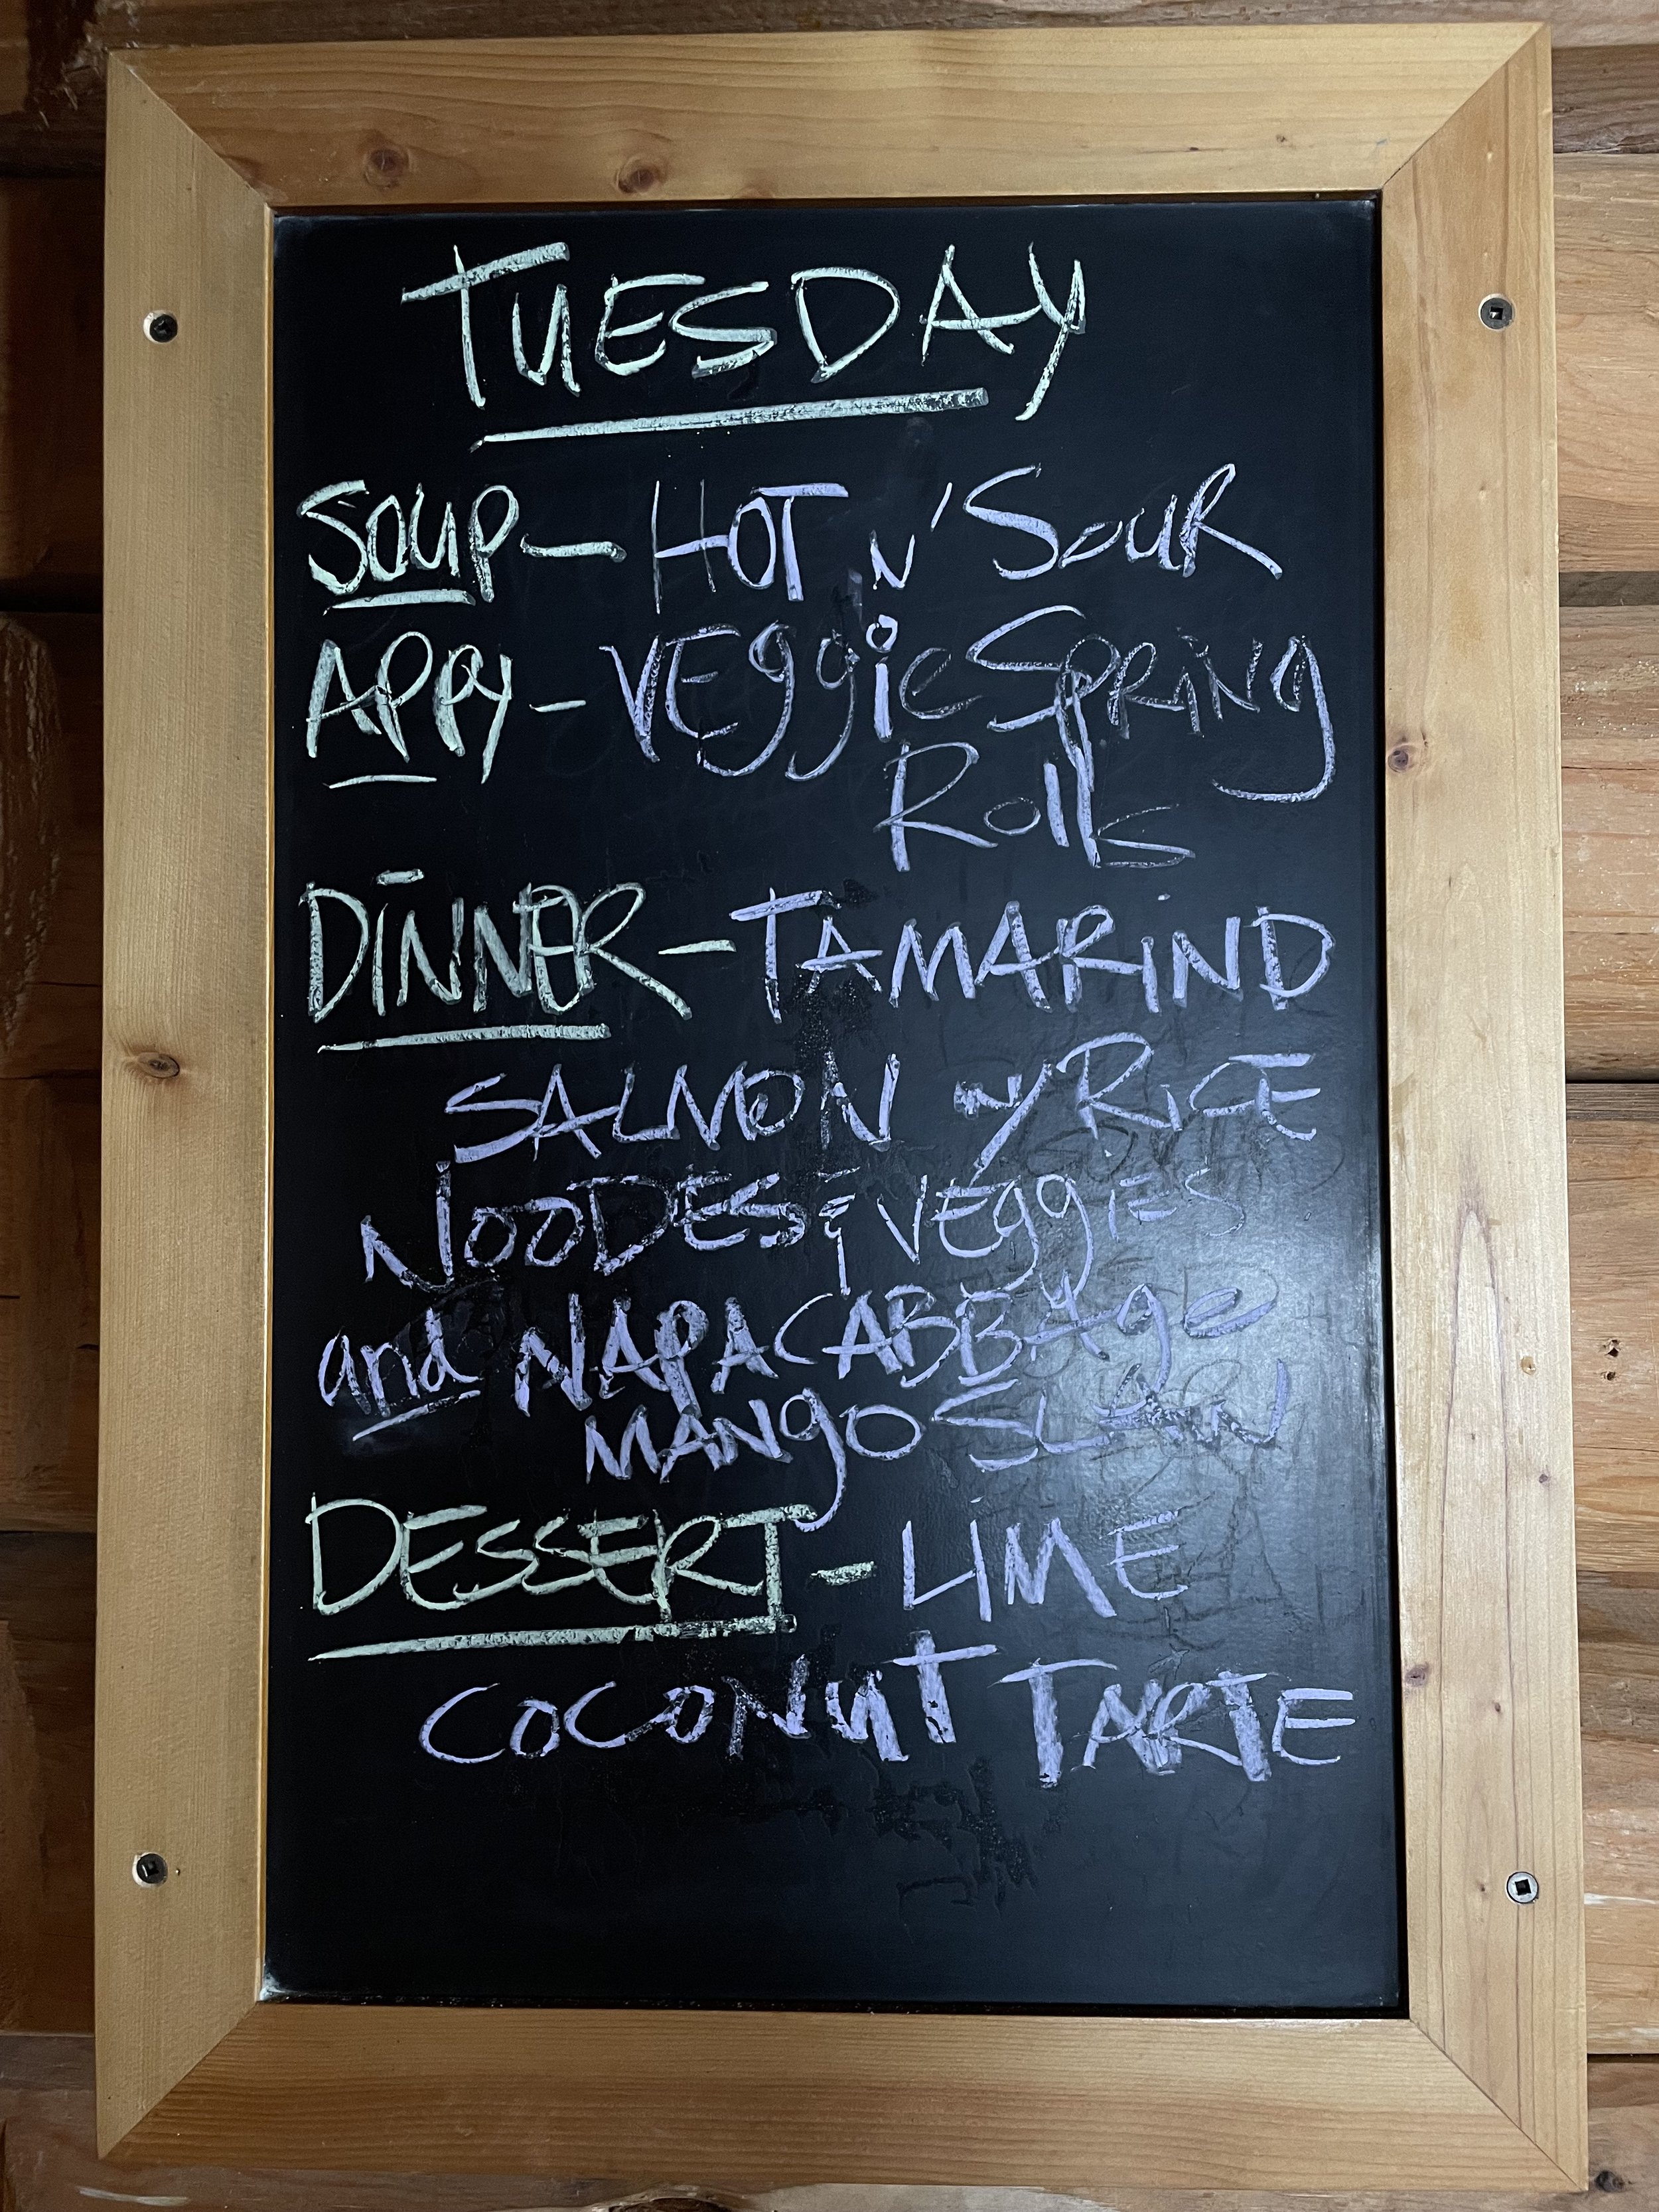 TUESDAY
SOUP - HOT N' SOUR
APPY - VEggie SPRiNg
Rolls
DiNNER - TAMARiND
SALMON w/ RiCE
NOODES & VEggiES
and NAPA CABBAge
MANgO SLAW
DESSERT - LIME
COCONuT TARTE